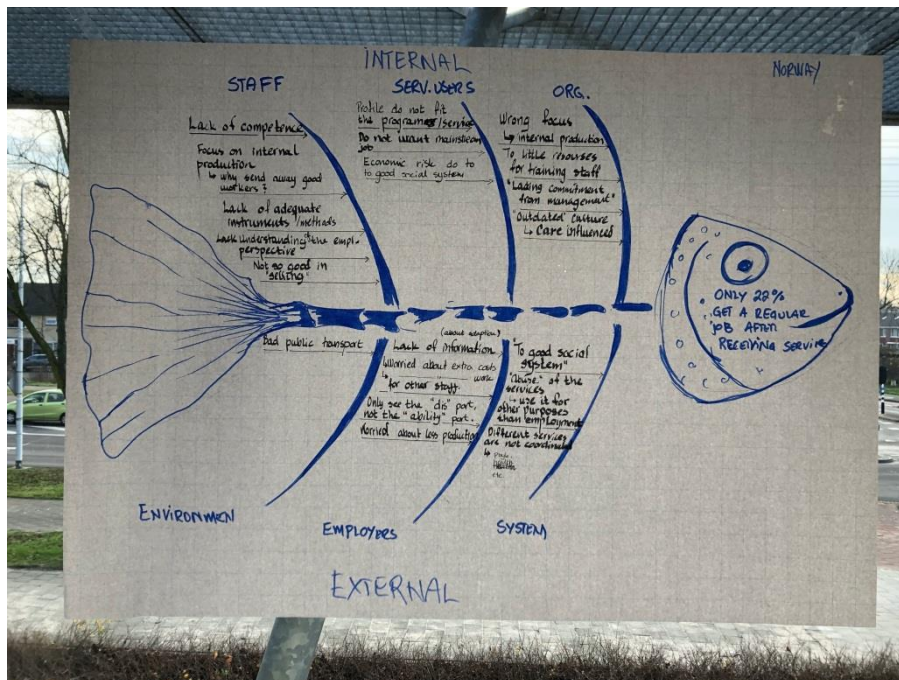 INTERNAL
NORWAY
STAFF
Lack of competence
Focus on internal
production
↳ why send away good
workers?
Lack of adequate
instruments/methods
Lack understanding of the empl.
perspective
Not so good in
"selling"
SERV.USERS
Profile do not fit
the programs/service
Do not want mainstream
job
Economic risk do to
to good social system
ORG.
Wrong focus
↳ internal production
To little resourses
for training staff
"Lading commitment
from management"
"Outdated" culture
↳ Care influenced
ONLY 22%
GET A REGULAR
JOB AFTER
RECEIVING SERVICE
Bad public transport
ENVIRONMEN
(about adaption)
Lack of information
Worried about extra costs
↳ work
for other staff
Only see the "dis" part,
not the "ability" part.
Worried about less production
EMPLOYERS
"To good social
system"
"Abuse" of the
services
↳ use it for
other purposes
than employment
Different services
are not coordinated
↳
Health
etc.
SYSTEM
EXTERNAL